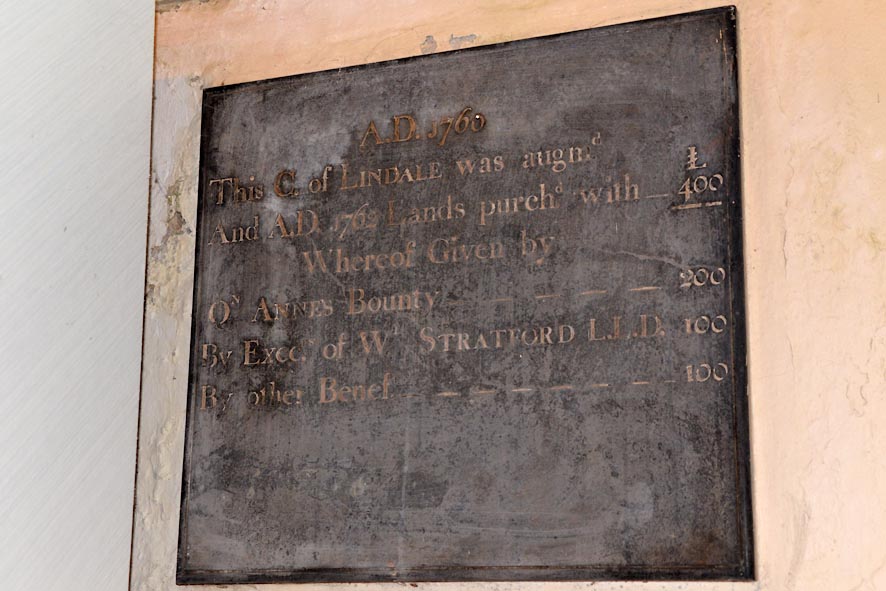 A.D. 1760
This C. of LINDALE was augm.d Ł
And A.D. 1762 Lands purch.d with — 400
Whereof Given by
Q.N ANNES Bounty — — — — 200
By Exec.rs of W.m STRATFORD L.L.D. 100
By other Benef. — — — — — — 100